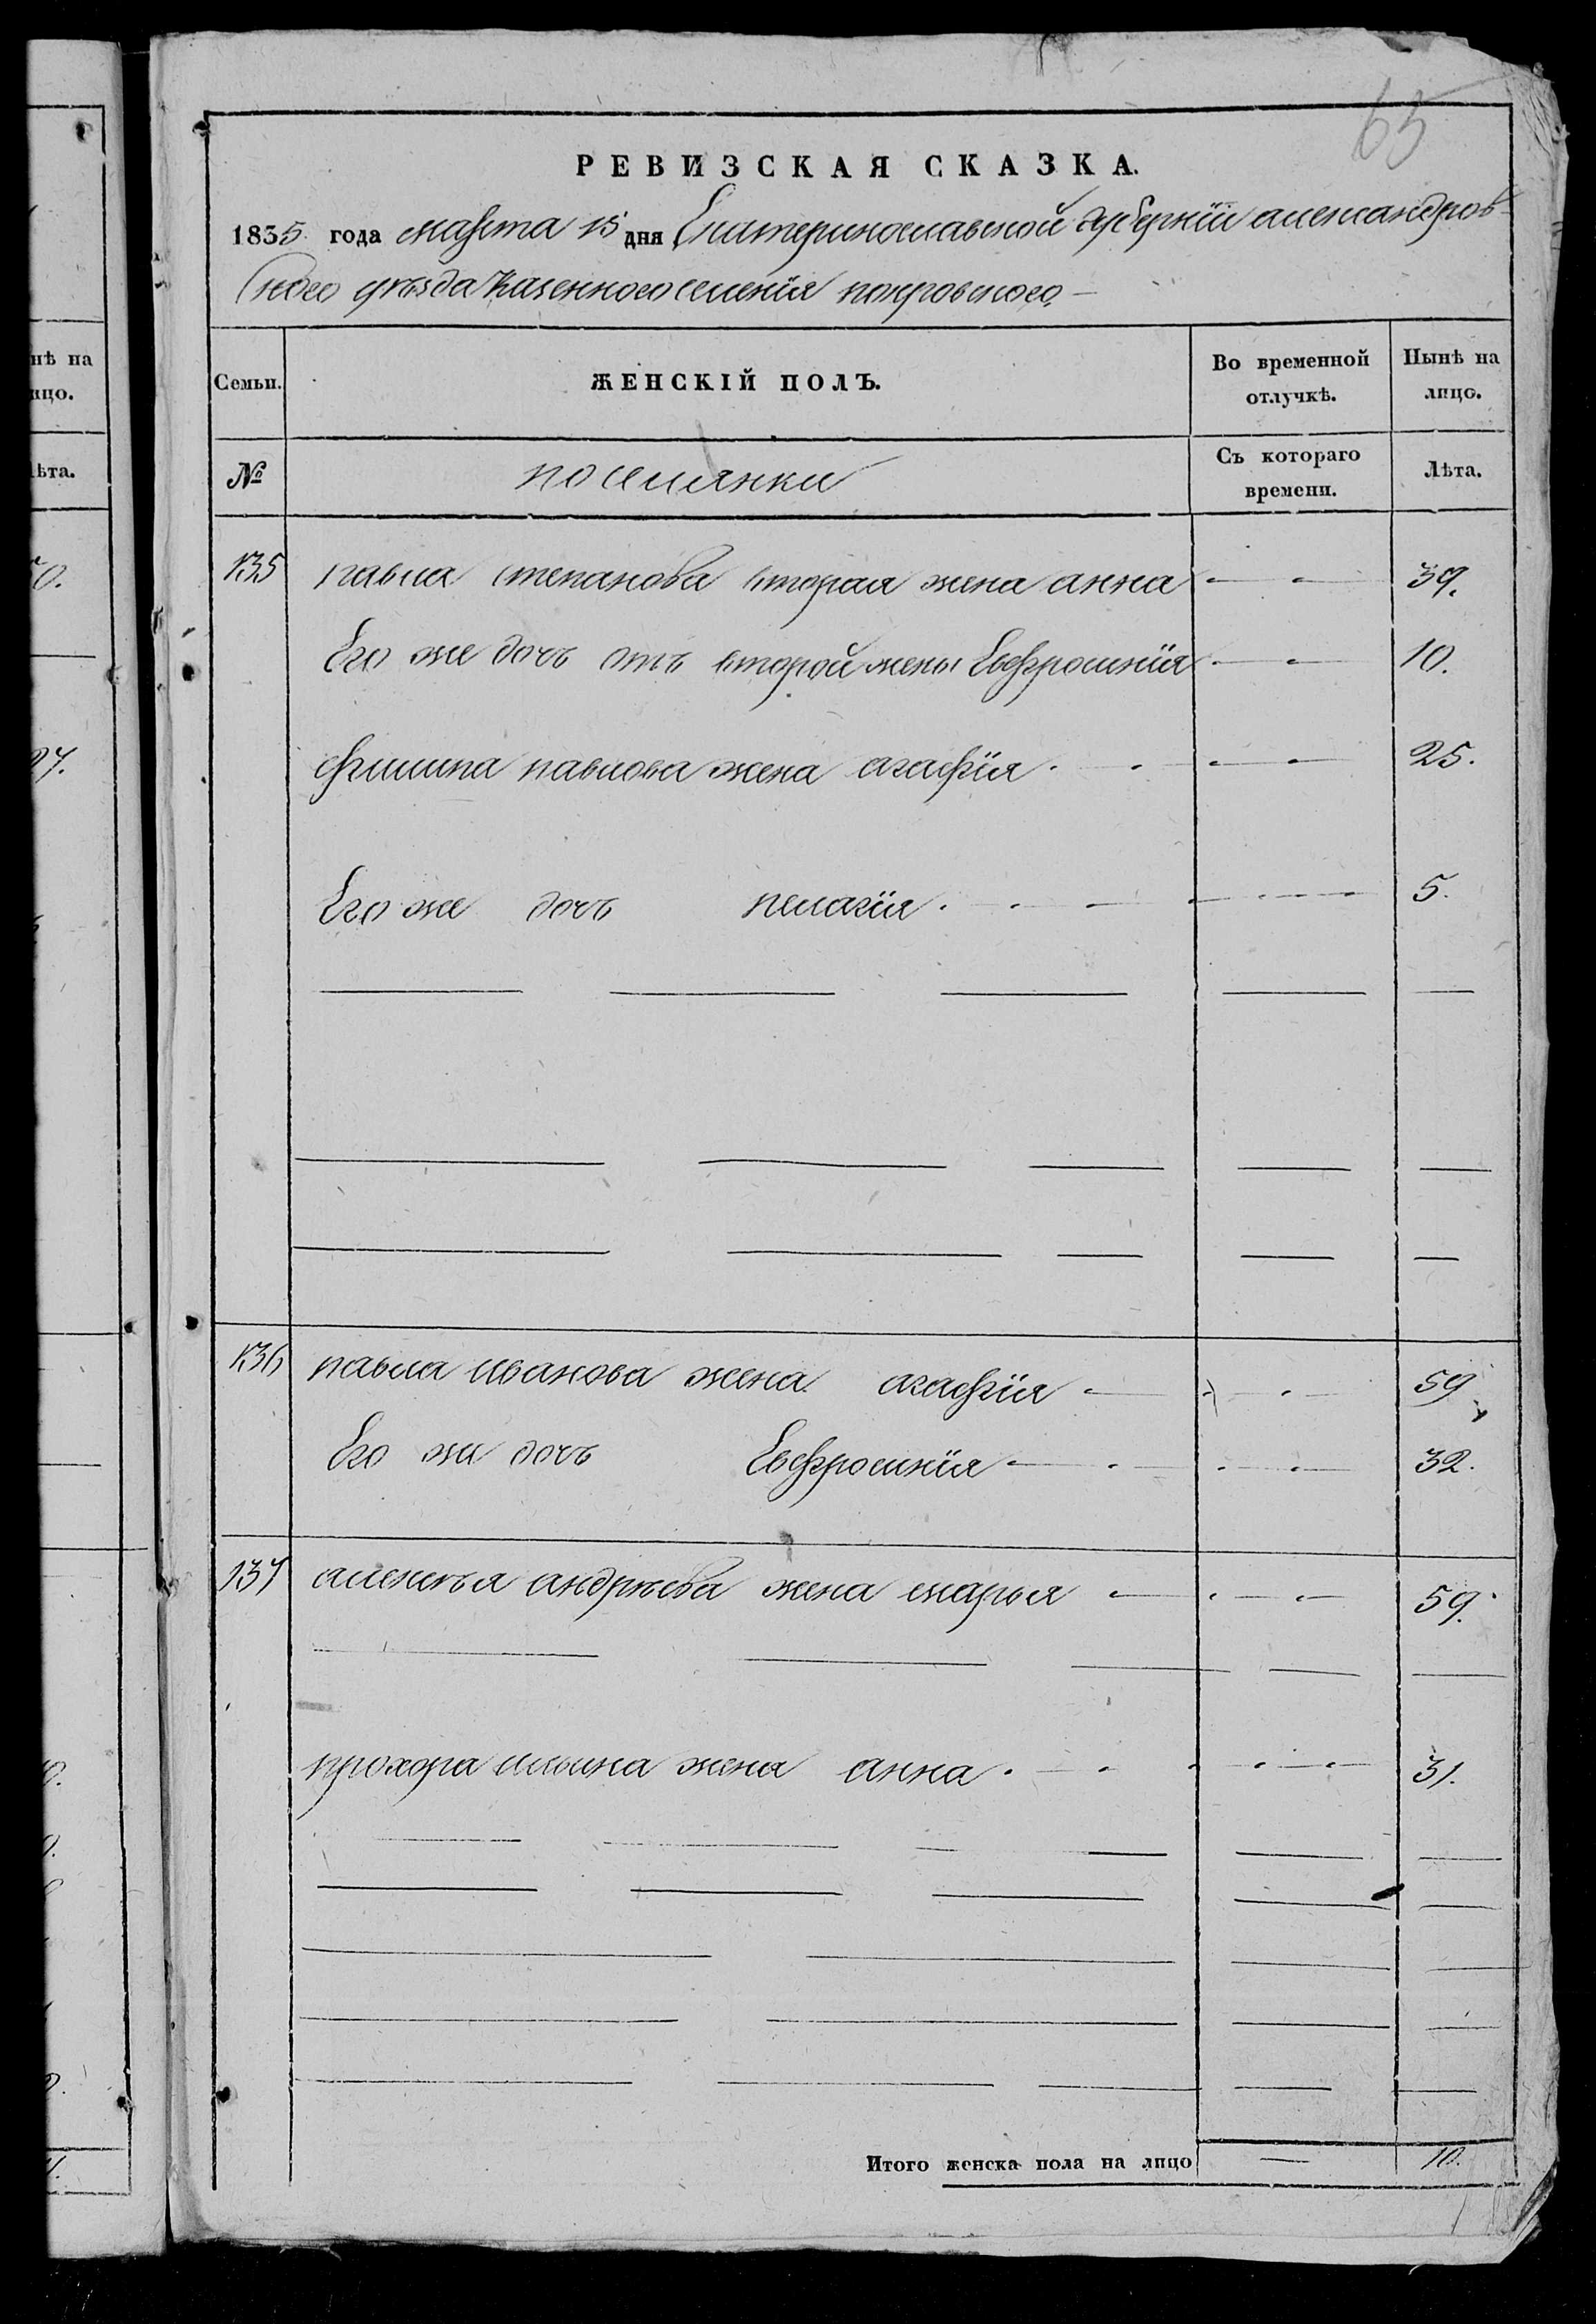 65
РЕВИЗСКАЯ СКАЗКА.
1835 года марта 15 дня Екатеринославской губернїи александров-
скаго уѣзда казенного селенїя покровского
Семьи. ЖЕНСКІЙ ПОЛЪ. Во временной отлучкѣ. Нынѣ на лицо.
№ поселянки Съ котораго времени. Лѣта.
135 павла степанова вторая жена анна 39.
Его же дочь отъ второй жены Евфросинїя 10.
филипа павлова жена агафїя 25.
Его же дочь пелагїя 5.
136 павла иванова жена агафїя 59
Его же дочь Евфросинїя 32.
137 алексѣя андрѣева жена марья 59.
прохора ильина жена анна 31.
Итого женска пола на лицо — 10.
нѣ на
ицо.
ѣта.
0.
27.